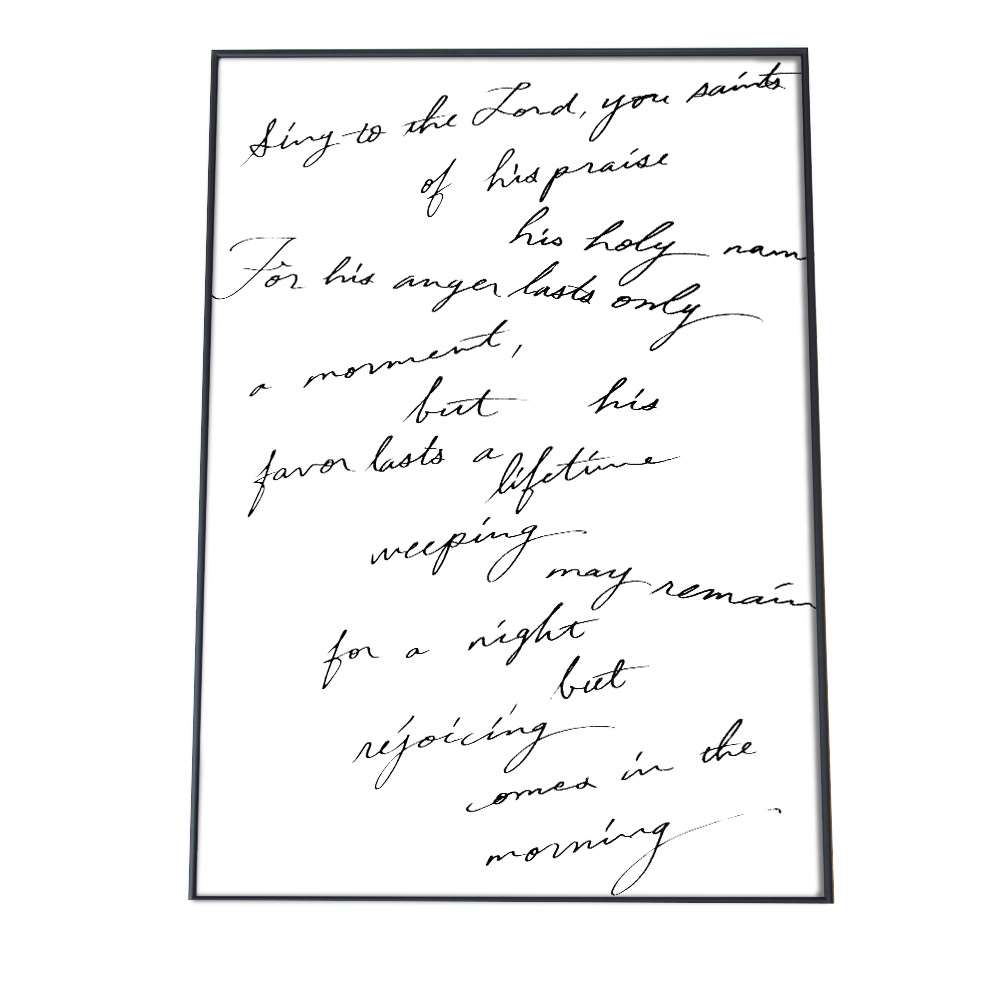 Sing to the Lord, you saints
of his praise
his holy nam
For his anger lasts only
a morment,
but his
favor lasts a
lifetime
weeping
may remain
for a night
but
rejoicing
comes in the
morning